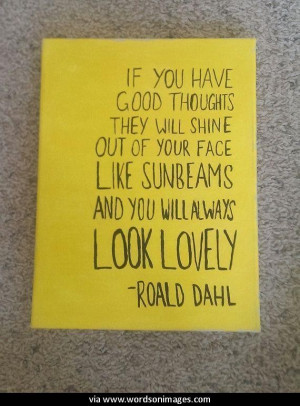 IF YOU HAVE
GOOD THOUGHTS
THEY WILL SHINE
OUT OF YOUR FACE
LIKE SUNBEAMS
AND YOU WILL ALWAYS
LOOK LOVELY
-ROALD DAHL
via www.wordsonimages.com